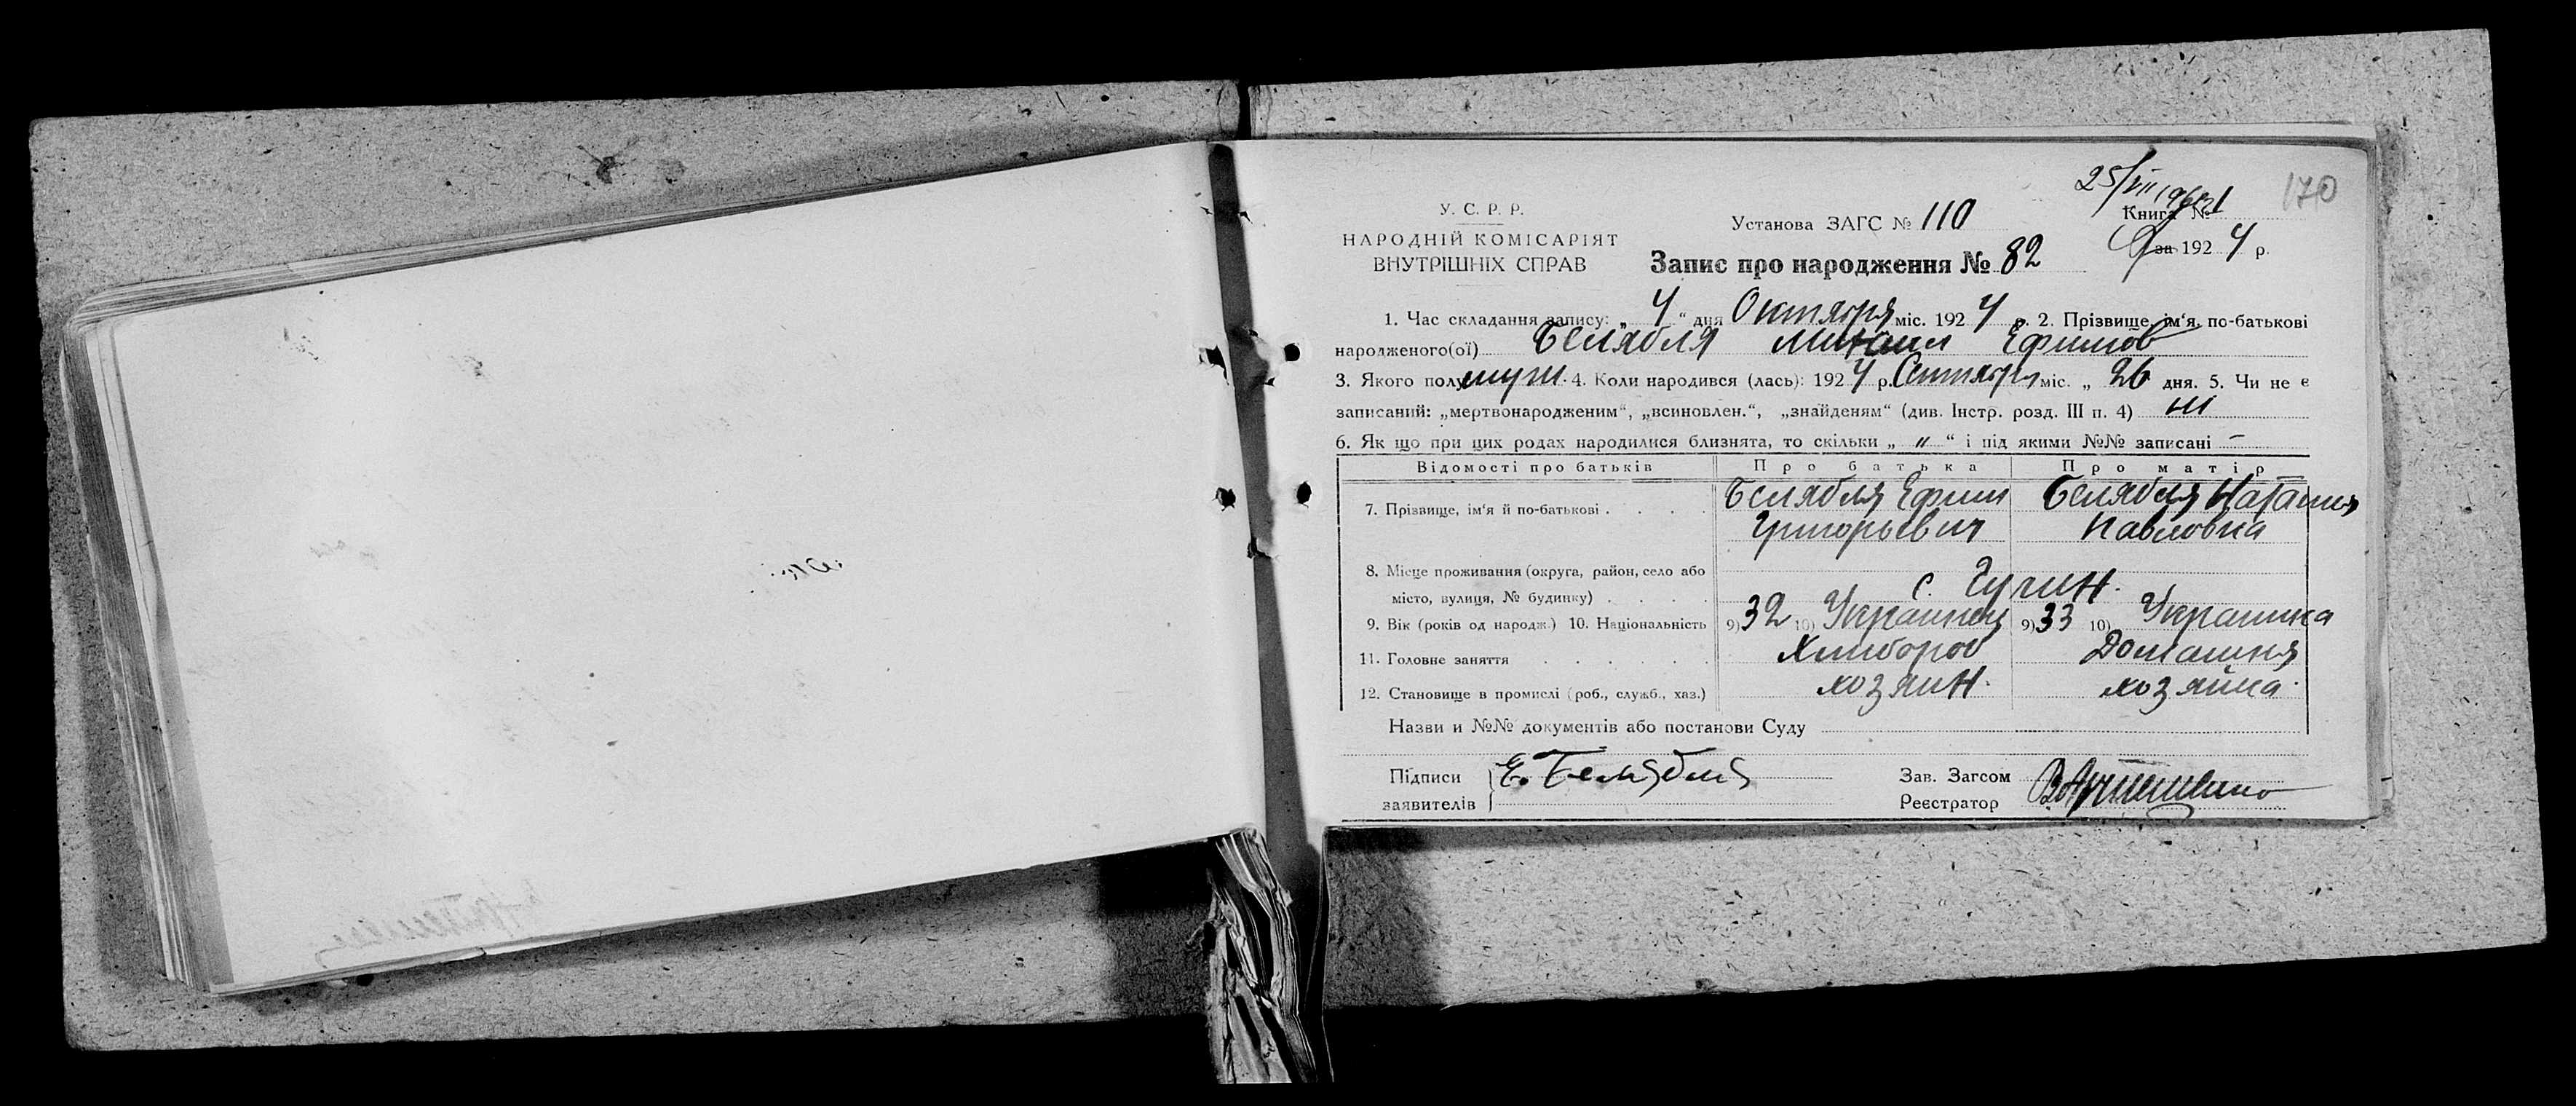 25/VII 1961
170
У. С. Р. Р.
НАРОДНІЙ КОМІСАРІЯТ
ВНУТРІШНІХ СПРАВ
Установа ЗАГС № 110
Книга №
за 1924 р.
Запис про народження № 82
1. Час складання запису: „ 4 “ дня Октября міс. 1924 р. 2. Прізвище, ім‘я, по-батькові
народженого(ої) Белябля Михаил Ефимов
3. Якого полу муж. 4. Коли народився (лась): 1924 р. Сентября міс. „ 26 дня. 5. Чи не є
записаний: „мертвонародженим“, „всиновлен.“, „знайденям“ (див. Інстр. розд. III п. 4)
6. Як що при цих родах народилися близнята, то скільки „ 〃 “ і під якими №№ записані –
Відомості про батьків Про батька Про матір
7. Прізвище, ім‘я й по-батькові . . . . Белябля Ефим Григорьевич Белябля Наталия Павловна
8. Місце проживання (округа, район, село або
місто, вулиця, № будинку) . . . . с. Гучин.
9. Вік (років од народж.) 10. Національність 9) 32 10) Украинец 9) 33 10) Украинка
11. Головне заняття . . . . . . Хлибороб Домашня
12. Становище в промислі (роб., служб., хаз.) хозяин. хозяйка.
Назви и №№ документів або постанови Суду
Підписи
заявителів
Е. Белябля
Зав. Загсом
Реєстратор